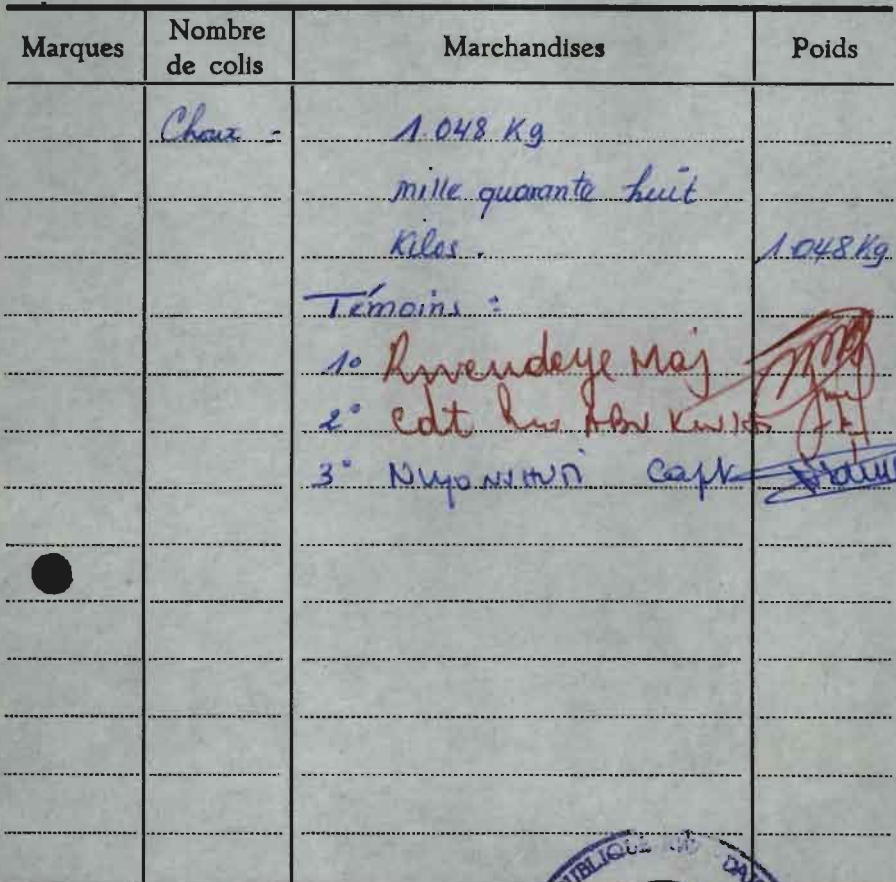 Marques Nombre de colis Marchandises Poids
Choux - 1.048 Kg
mille quarante huit
Kilos. 1.048 Kg
Témoins :
1° Rwendeye Maj
2° Cdt
3° Capt